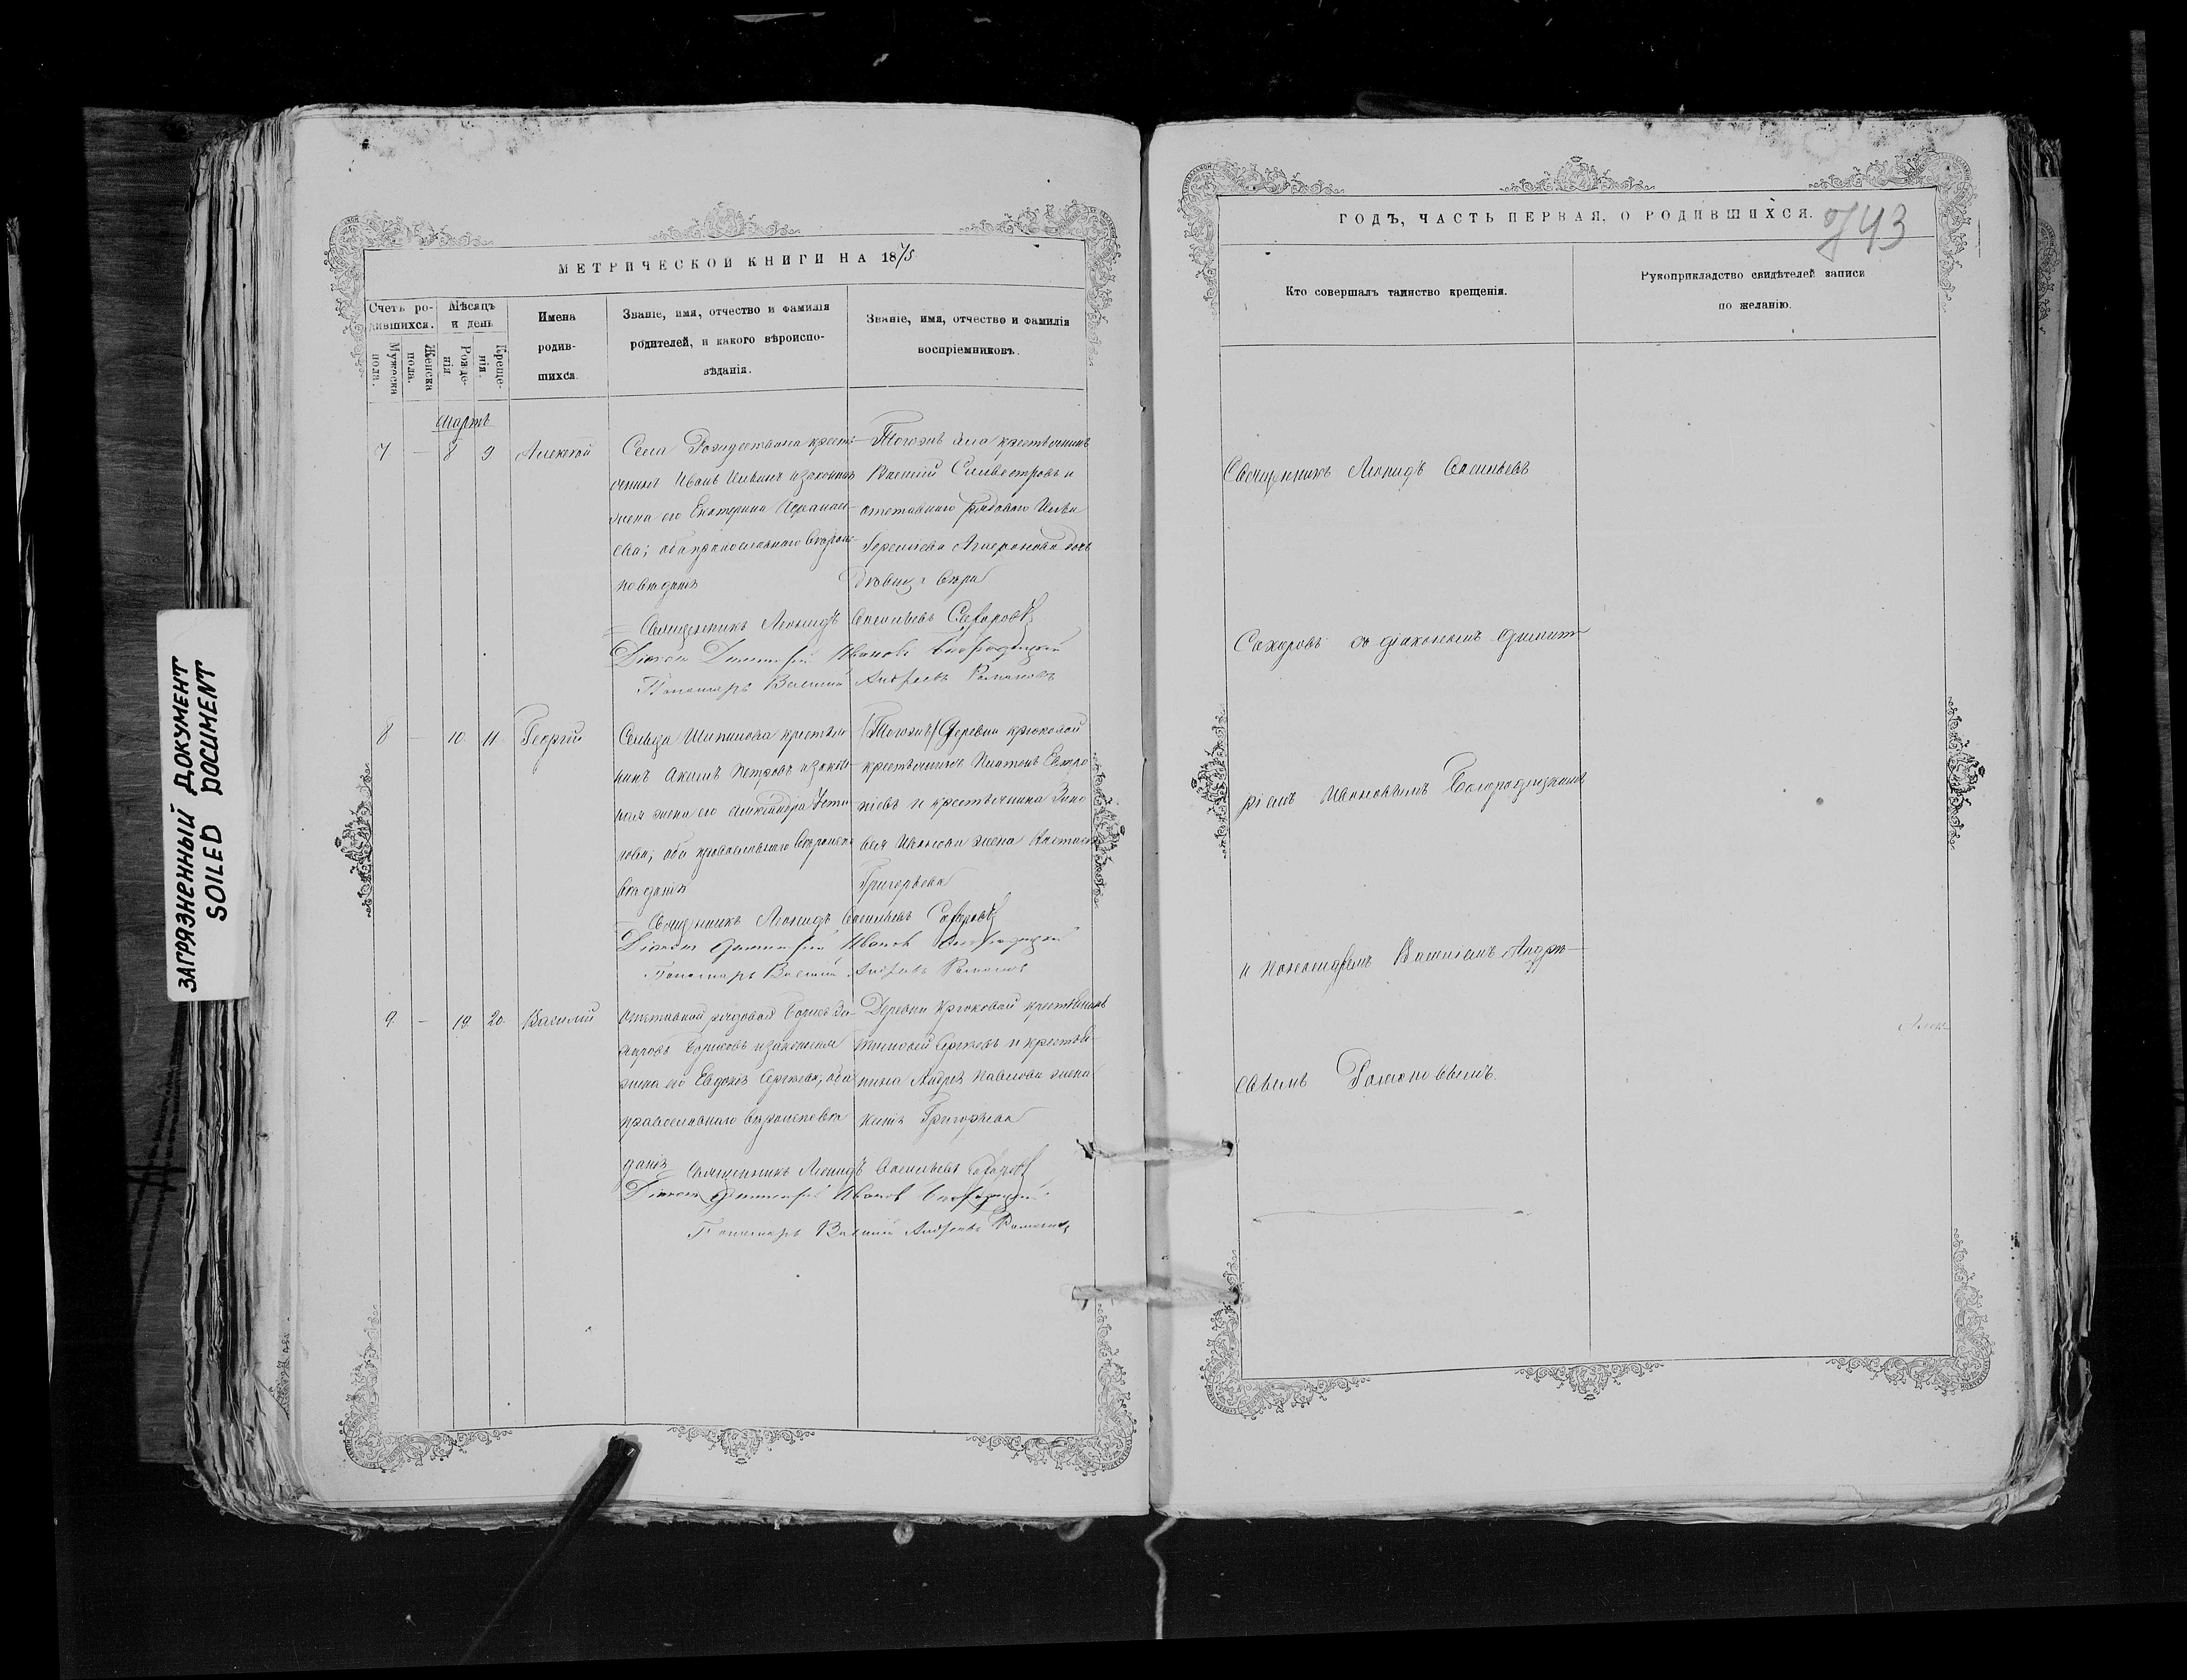 ЗАГРЯЗНЕННЫЙ ДОКУМЕНТ
SOILED DOCUMENT
МЕТРИЧЕСКОЙ КНИГИ НА 1875
Счетъ ро-
дившихся.
Мужеска
пола.
Женска
пола.
Мѣсяцъ
и день
Рожде-
нія
Креще-
нія.
Имена
родив-
шихся
Званіе, имя, отчество и фамилія
родителей, и какого вѣроиспо-
вѣданія.
Званіе, имя, отчество и фамилія
воспріемниковъ.
Мартъ
7 — 8 9 Алексѣй
Села Рождествена кресть-
янинъ Иванъ и законная
жена его Екатерина
ева; оба православнаго вѣроис-
повѣданія
Тогожъ села крестьянинъ
Василій Сильвестровъ и
отставнаго рядоваго
дочь
дѣвица Вѣра
Священникъ Леонидъ Васильевъ Сахаровъ
Діаконъ Димитрій Ивановъ Богородицкій
Пономарь Василій Андреевъ Романовъ
8 — 10 11 Георгій
Сельца крестья-
нинъ Акимъ Петровъ и закон-
ная жена его Александра
оба православнаго вѣроиспо-
вѣданія
(Тогожъ) Деревни Крюковой
крестьянинъ Платонъ
и крестьянина Зино-
вія Иванова жена
Григорьева
Священникъ Леонидъ Васильевъ Сахаровъ
Діаконъ Димитрій Ивановъ Богородицкій
Пономарь Василій Андреевъ Романовъ
9 — 19 20 Василій
Отставной рядовой Борисъ
Борисовъ и законная
жена его Евдокія Сергѣева; оба
православнаго вѣроисповѣ-
данія
Деревни Крюковой крестьянинъ
Сергѣевъ и крестья-
нина Андрея Павлова жена
Григорьева
Священникъ Леонидъ Васильевъ Сахаровъ
Діаконъ Димитрій Ивановъ Богородицкій
Пономарь Василій Андреевъ Романовъ
ГОДЪ, ЧАСТЬ ПЕРВАЯ, О РОДИВШИХСЯ.
743
Кто совершалъ таинство крещенія.
Рукоприкладство свидѣтелей записи
по желанію.
Священникъ Леонидъ Васильевъ
Сахаровъ съ діакономъ Димит-
ріемъ Ивановымъ Богородицкимъ
и пономаремъ Василіемъ Андре-
евымъ Романовымъ.